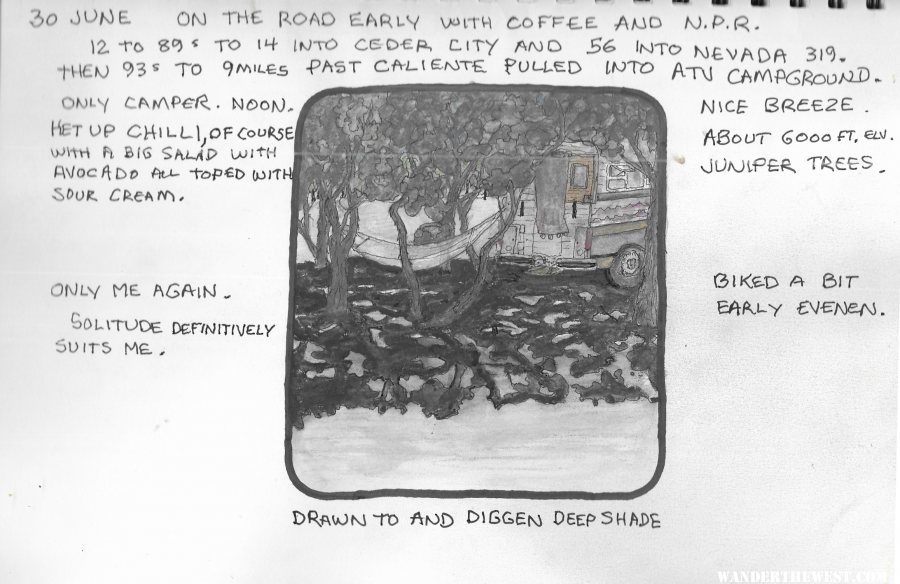 30 JUNE ON THE ROAD EARLY WITH COFFEE AND N.P.R.
12 TO 89S TO 14 INTO CEDER CITY AND 56 INTO NEVADA 319.
THEN 93S TO 9MILES PAST CALIENTE PULLED INTO ATV CAMPGROUND.
ONLY CAMPER. NOON.
HET UP CHILLI, OF COURSE
WITH A BIG SALAD WITH
AVOCADO ALL TOPED WITH
SOUR CREAM.
NICE BREEZE.
ABOUT 6000 FT. ELV.
JUNIPER TREES.
ONLY ME AGAIN.
SOLITUDE DEFINITIVELY
SUITS ME.
BIKED A BIT
EARLY EVENEN.
DRAWN TO AND DIGGEN DEEP SHADE
WANDERTHEWEST.COM